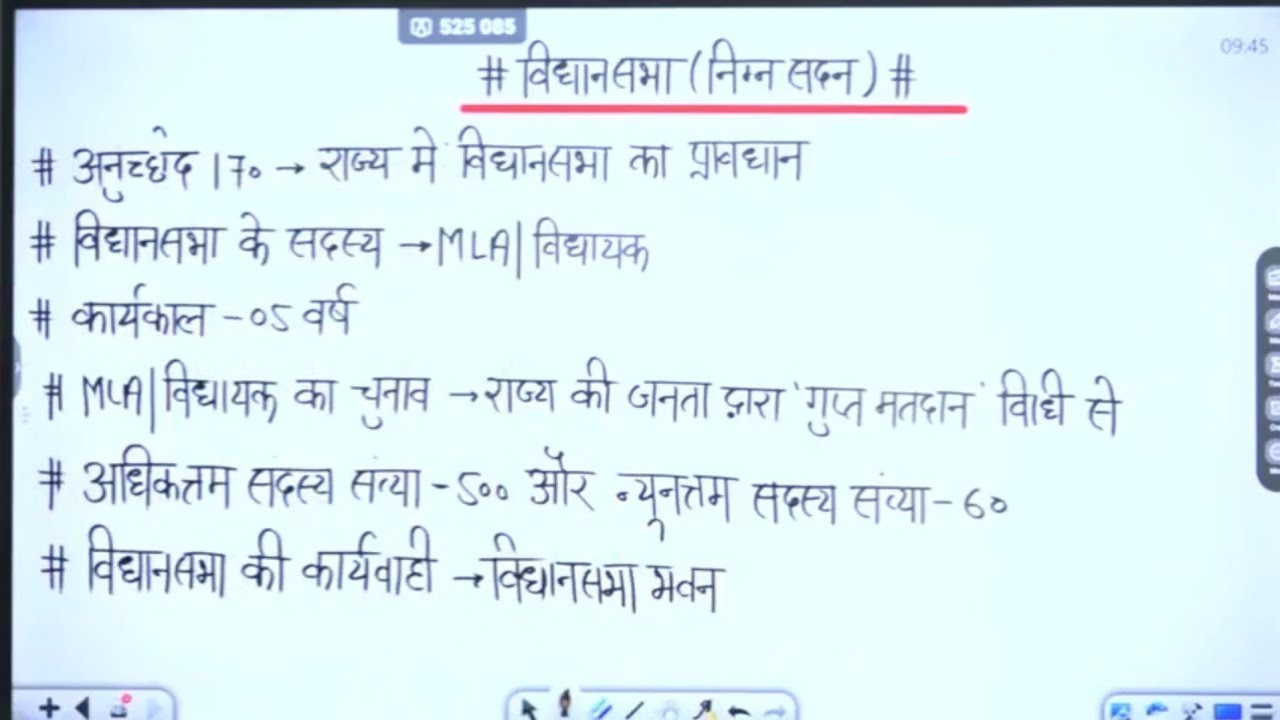 525 085
09:45
# विधानसभा (निम्न सदन) #
# अनुच्छेद 170 → राज्य में विधानसभा का प्रावधान
# विधानसभा के सदस्य → MLA| विधायक
# कार्यकाल - 05 वर्ष
# MLA| विधायक का चुनाव → राज्य की जनता द्वारा 'गुप्त मतदान' विधि से
# अधिकत्तम सदस्य संख्या - 500 और न्यूनत्तम सदस्य संख्या - 60
# विधानसभा की कार्यवाही → विधानसभा भवन